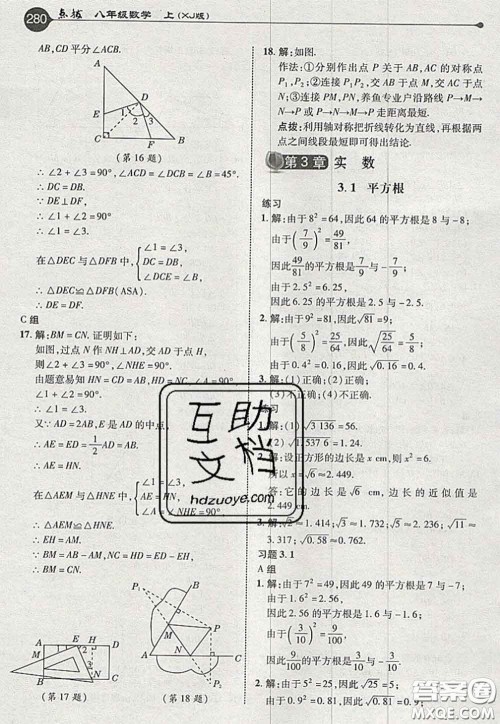 280 点拨 八年级数学 上(XJ版)
AB,CD平分∠ACB.
A
E
D
1 2 3
C F B
(第16题)
∴∠2+∠3=90°,∠ACD=∠DCB=∠B=45°.
∴DC=DB.
∵DE⊥DF,
∴∠1+∠2=90°.
∴∠1=∠3,
在△DEC与△DFB中,{∠1=∠3, DC=DB, ∠ECD=∠B,
∴△DEC≌△DFB(ASA).
∴DE=DF.
C组
17.解:BM=CN.证明如下:
如图,过点N作NH⊥AD,交AD于H,
则∠2+∠3=90°,∠NHE=90°.
由题意易知HN=CD=AB,HD=CN,∠A=90°.
又∵AD=2AB,E是AD的中点,
∴AE=ED=1/2AD=AB.
∴AE=HN.
在△AEM与△HNE中,
∴△AEM≌△HNE.
∴EH=AM.
∴BM=AB-AM,NC=HD=ED-EH.
∴BM=CN.
(第17题)
(第18题)
18.解:如图.
作法:①分别作出点P关于AB,AC的对称点
P₁,P₂;②连接P₁P₂,交AB于点M,交AC于点
N;③连接PM,PN,养鱼专业户沿路线P→M→
N→P走距离最短.
点拨:利用轴对称把折线转化为直线,再根据两
点之间线段最短即可得出结论.
第3章 实数
3.1 平方根
练习
1.解:由于8²=64,因此64的平方根是8与-8;
由于(7/9)²=49/81,
因此49/81的平方根是7/9与-7/9;
由于2.5²=6.25,
因此6.25的平方根是2.5与-2.5.
2.解:由于9²=81,因此√81=9;
由于(5/8)²=25/64,因此√(25/64)=5/8;
由于0.4²=0.16,因此√0.16=0.4.
3.解:(1)正确;(2)正确;(3)正确.
练习
1.解:(1)√3136=56.
2.解:设正方形的边长是x cm,则x²=6.
所以x=√6≈2.449.
答:它的边长是√6 cm,边长的近似值是
2.449 cm.
3.解:√2≈1.414,√3≈1.732,√11≈
3.317,√0.58≈0.762.
习题3.1
A组
1.解:由于7²=49,因此49的平方根是7与-7;
由于1.6²=2.56,
因此2.56的平方根是1.6与-1.6;
由于(3/10)²=9/100,
因此9/100的平方根是3/10与-3/10;
由于0.9²=0.81,因此0.81的平方根是0.9与
互助
文档
hdzuoye.com
答案圈
MXQE.COM